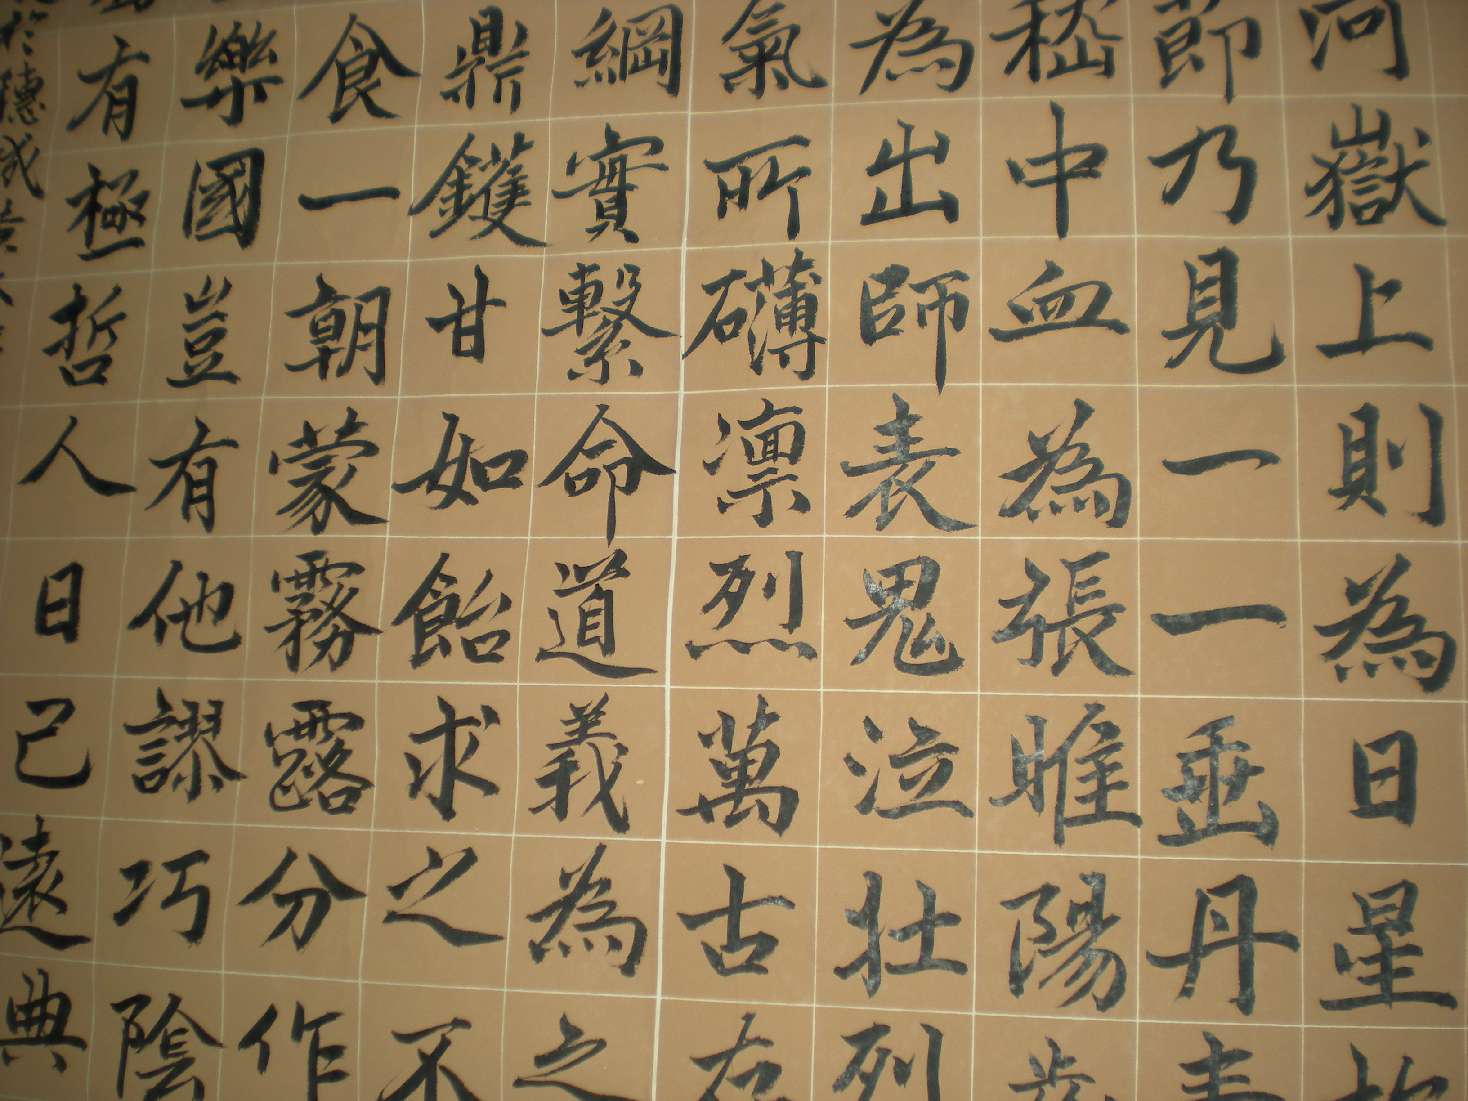 河嶽上則為日星於
節乃見一一垂丹青
嵇中血為張睢陽齒
為出師表鬼泣壯烈
氣所礴凛烈萬古存
綱實繫命道義為之
鼎鑊甘如飴求之不
食一朝蒙霧露分作
樂國豈有他謬巧陰
有極哲人日已遠典